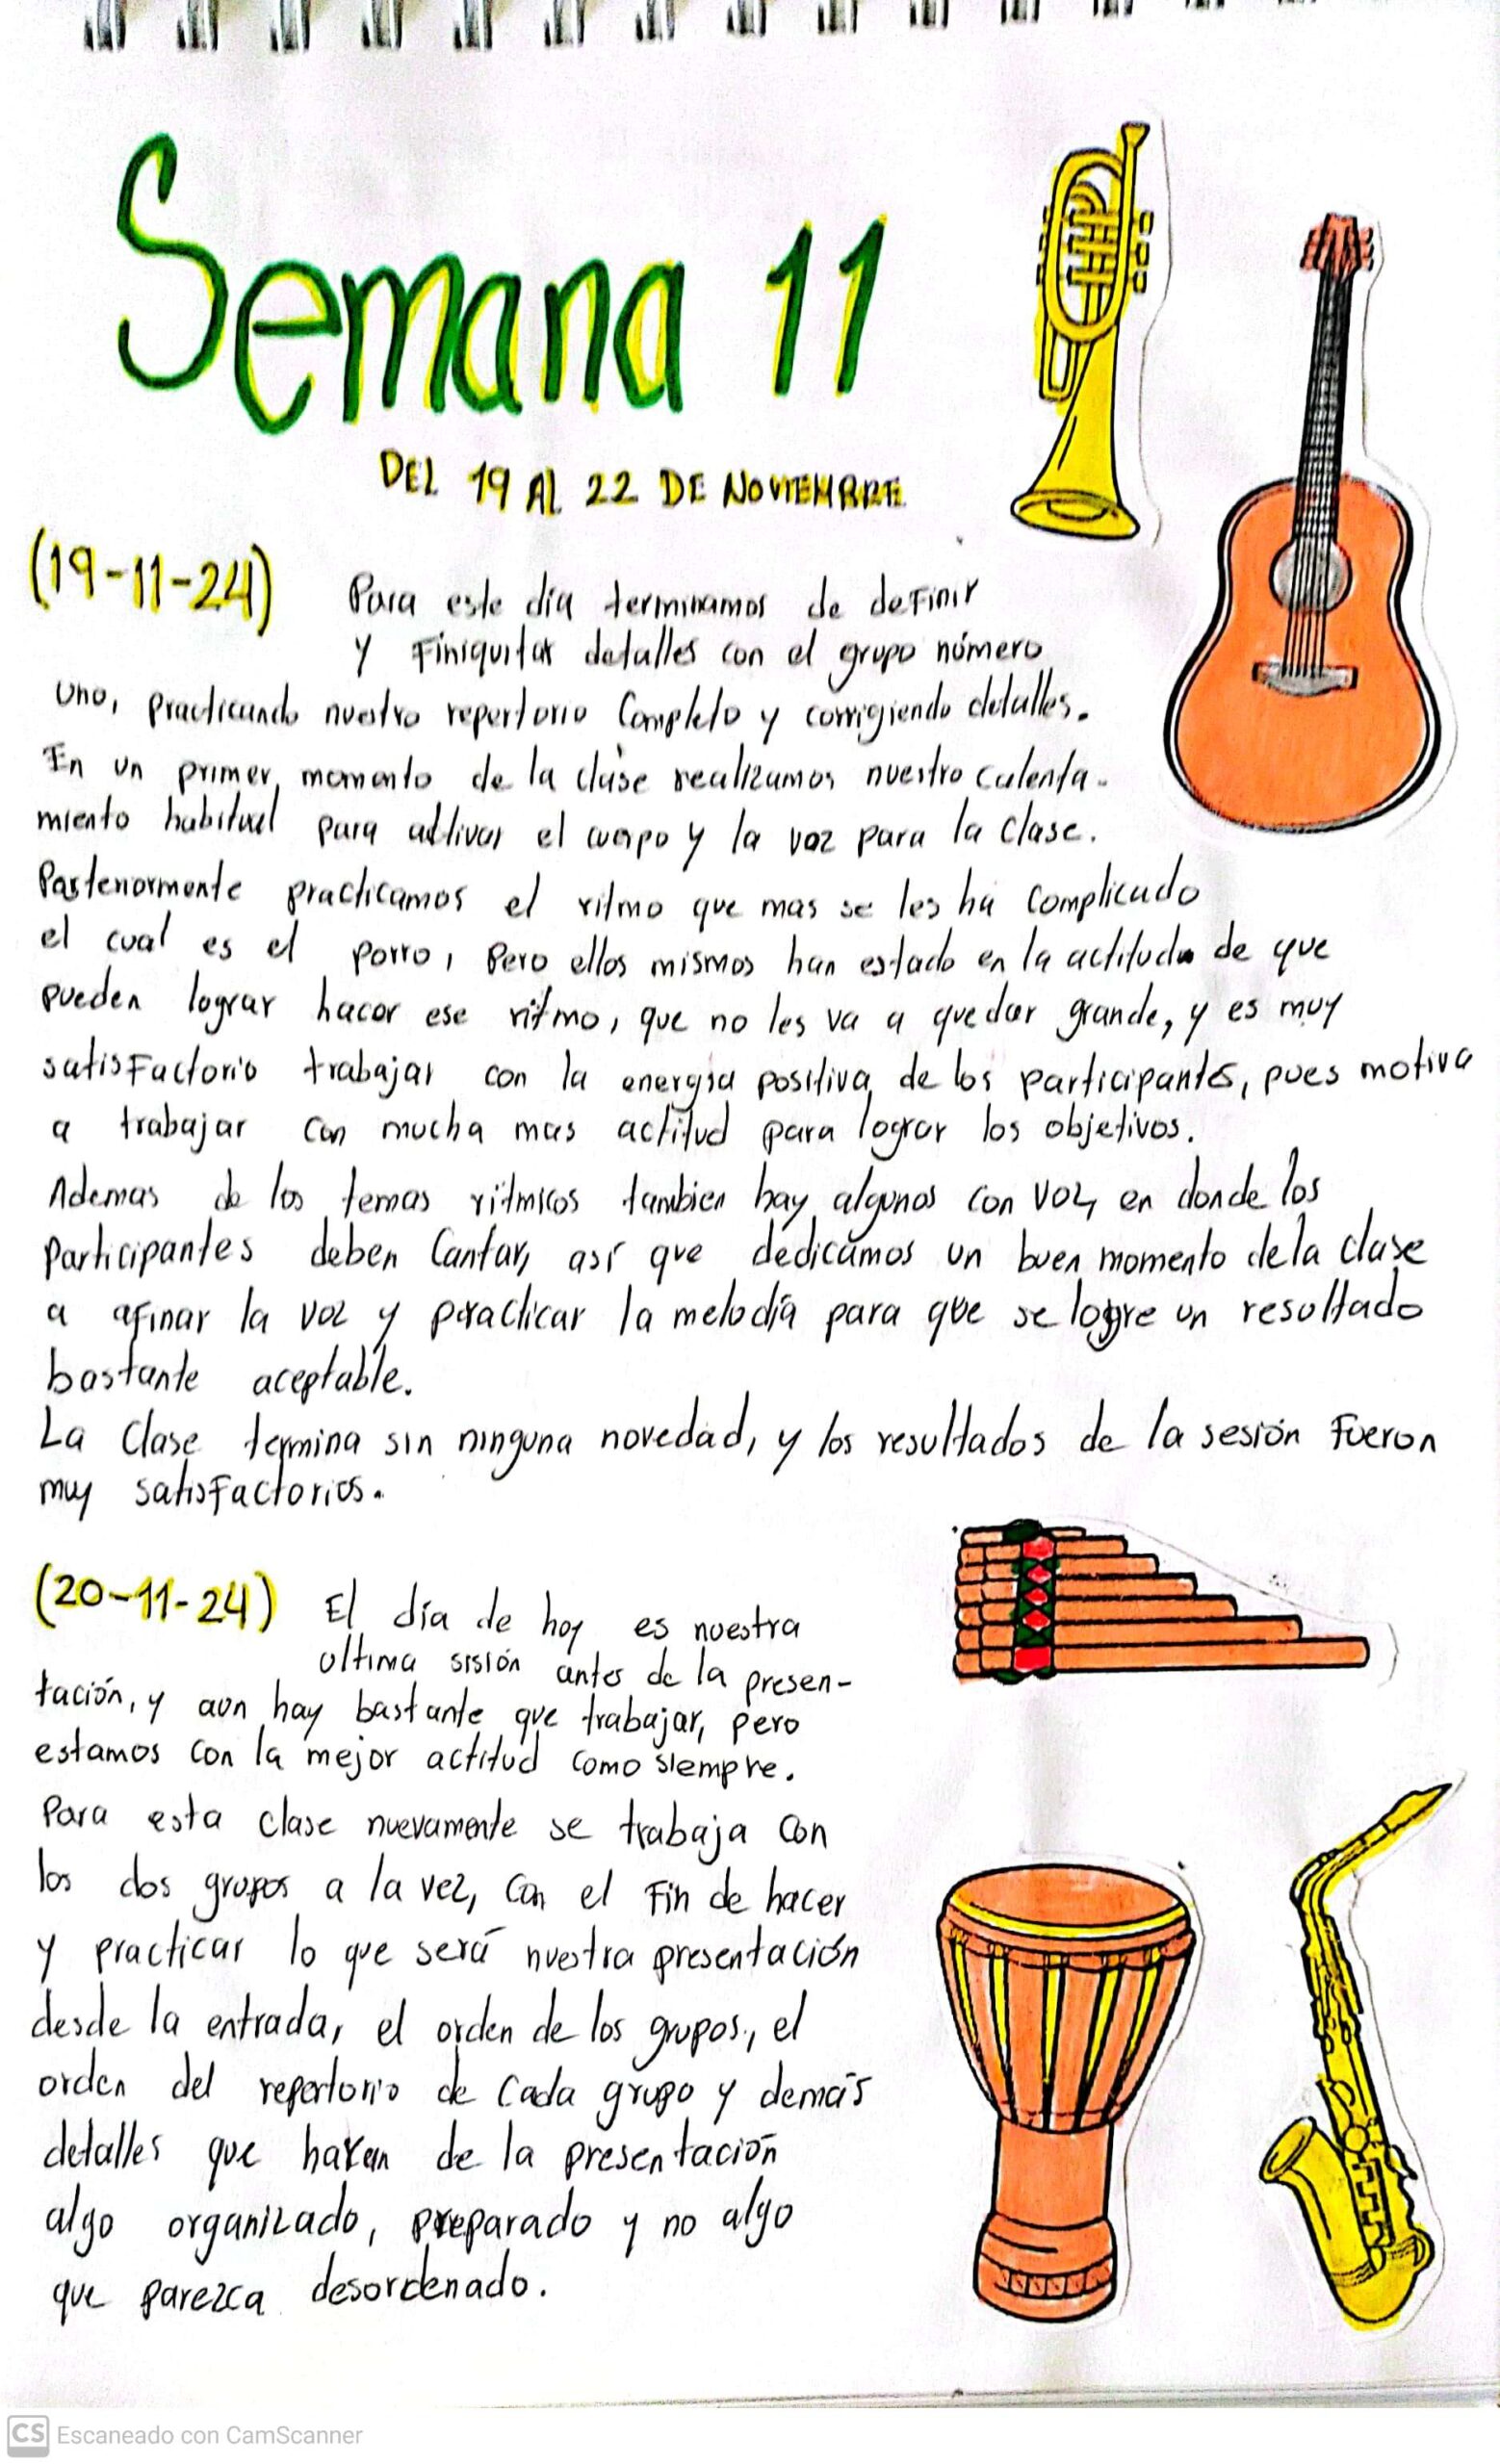 Semana 11
DEL 19 AL 22 DE NOVIEMBRE
(19-11-24)
Para este día terminamos de definir
y Finiquitar detalles con el grupo número
uno, practicando nuestro repertorio Completo y corrigiendo detalles.
En un primer momento de la clase realizamos nuestro calenta-
miento habitual para activar el cuerpo y la voz para la Clase.
Posteriormente practicamos el ritmo que mas se les ha complicado
el cual es el porro, Pero ellos mismos han estado en la actitud de que
pueden lograr hacer ese ritmo, que no les va a quedar grande, y es muy
satisFactorio trabajar con la energía positiva de los participantes, pues motiva
a trabajar con mucha mas actitud para lograr los objetivos.
Ademas de los temas rítmicos tambien hay algunos con voz, en donde los
Participantes deben Cantar, así que dedicámos un buen momento de la clase
a afinar la voz y practicar la melodía para que se logre un resultado
bastante aceptable.
La Clase termina sin ninguna novedad, y los resultados de la sesión Fueron
muy satisFactorios.
(20-11-24)
El día de hoy es nuestra
ultima sisión antes de la presen-
tación, y aun hay bastante que trabajar, pero
estamos con la mejor actitud como siempre.
Para esta clase nuevamente se trabaja con
los dos grupos a la vez, con el Fin de hacer
y practicar lo que será nuestra presentación
desde la entrada, el orden de los grupos, el
orden del repertorio de Cada grupo y demás
detalles que haran de la presentación
algo organizado, preparado y no algo
que parezca desordenado.
CS Escaneado con CamScanner